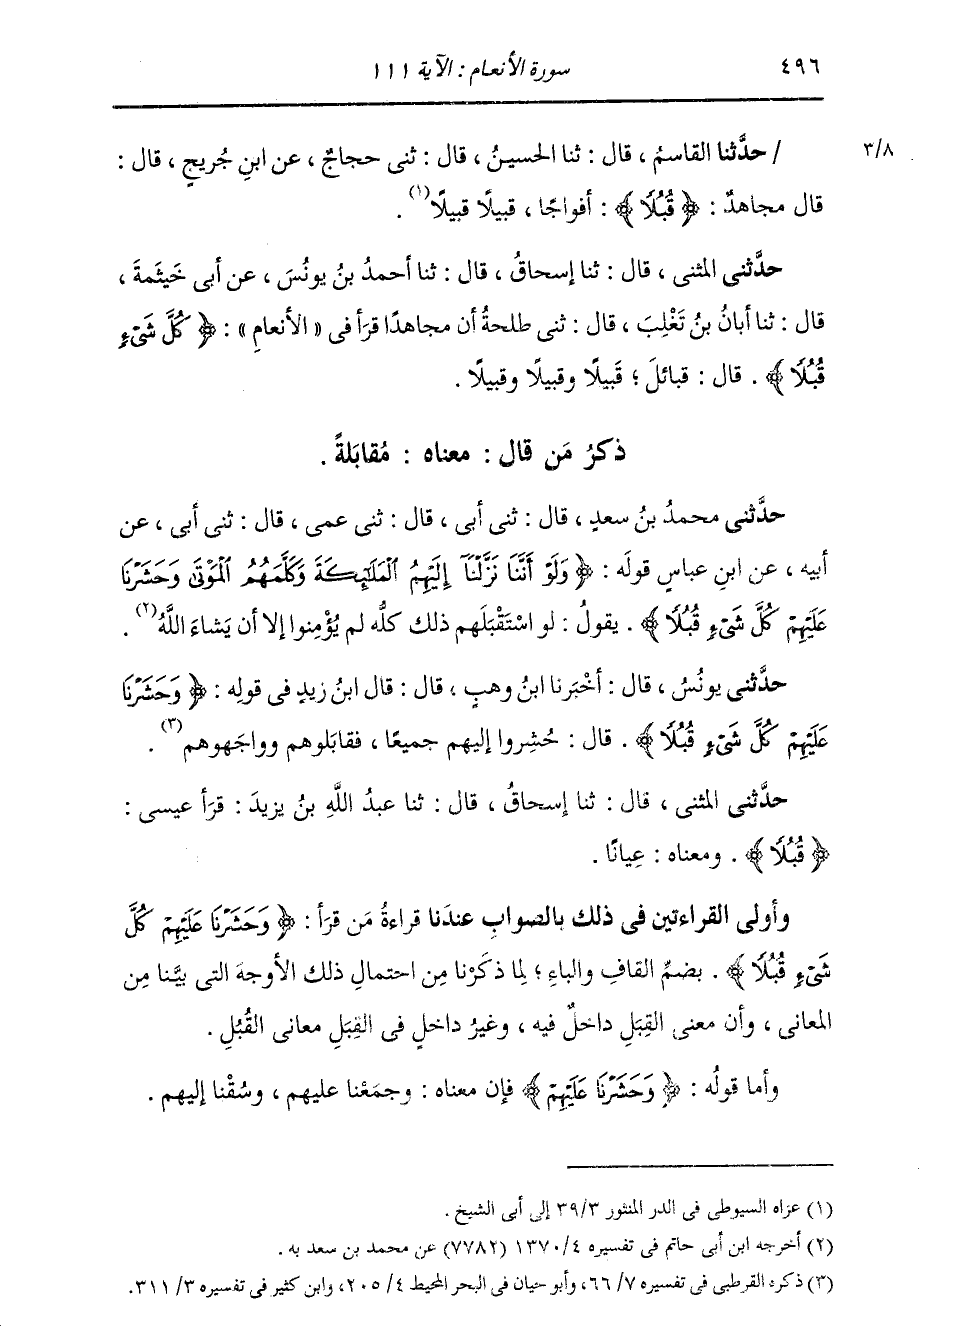 ٤٩٦ سورة الأنعام : الآية ١١١
٣/٨ / حدَّثنا القاسمُ ، قال : ثنا الحسينُ ، قال : ثنى حجاجٌ ، عن ابنِ جُريجٍ ، قال :
قال مجاهدٌ : ﴿ قُبُلًا ﴾ : أفواجًا ، قبيلًا قبيلًا(١) .
حدَّثنى المثنى ، قال : ثنا إسحاقُ ، قال : ثنا أحمدُ بنُ يونُسَ ، عن أبى خَيثمةَ ،
قال : ثنا أبانُ بنُ تَغْلِبَ ، قال : ثنى طلحةُ أن مجاهدًا قرَأ فى « الأنعامِ » : ﴿ كُلَّ شَىْءٍ
قُبُلًا ﴾ . قال : قبائلَ ؛ قَبيلًا وقبيلًا وقبيلًا .
ذكرُ مَن قال : معناه : مُقابَلةً .
حدَّثنى محمدُ بنُ سعدٍ ، قال : ثنى أبى ، قال : ثنى عمى ، قال : ثنى أبى ، عن
أبيه ، عن ابنِ عباسٍ قولَه : ﴿ وَلَوْ أَنَّنَا نَزَّلْنَآ إِلَيْهِمُ الْمَلَٰٓئِكَةَ وَكَلَّمَهُمُ الْمَوْتَىٰ وَحَشَرْنَا
عَلَيْهِمْ كُلَّ شَىْءٍ قُبُلًا ﴾ . يقولُ : لو اسْتَقْبَلَهم ذلك كلُّه لم يُؤْمِنوا إلا أن يَشاءَ اللَّهُ(٢) .
حدَّثنى يونُسُ ، قال : أخْبَرنا ابنُ وهبٍ ، قال : قال ابنُ زيدٍ فى قولِه : ﴿ وَحَشَرْنَا
عَلَيْهِمْ كُلَّ شَىْءٍ قُبُلًا ﴾ . قال : حُشِروا إليهم جميعًا ، فقابَلوهم وواجَهوهم(٣) .
حدَّثنى المثنى ، قال : ثنا إسحاقُ ، قال : ثنا عبدُ اللَّهِ بنُ يزيدَ : قرَأ عيسى :
﴿ قُبُلًا ﴾ . ومعناه : عِيانًا .
وأولى القراءتين فى ذلك بالصوابِ عندَنا قراءةُ مَن قرَأ : ﴿ وَحَشَرْنَا عَلَيْهِمْ كُلَّ
شَىْءٍ قُبُلًا ﴾ . بضمِّ القافِ والباءِ ؛ لِما ذكَرْنا مِن احتمالِ ذلك الأوجهَ التى بيَّنا مِن
المعانى ، وأن معنى القِبَلِ داخلٌ فيه ، وغيرُ داخلٍ فى القِبَلِ معانى القُبُلِ .
وأما قولُه : ﴿ وَحَشَرْنَا عَلَيْهِمْ ﴾ فإن معناه : وجمَعْنا عليهم ، وسُقْنا إليهم .
(١) عزاه السيوطى فى الدر المنثور ٣٩/٣ إلى أبى الشيخ .
(٢) أخرجه ابن أبى حاتم فى تفسيره ١٣٧٠/٤ (٧٧٨٢) عن محمد بن سعد به .
(٣) ذكره القرطبى فى تفسيره ٧/ ٦٦، وأبو حيان فى البحر المحيط ٤/ ٢٠٥، وابن كثير فى تفسيره ٣/ ٣١١.